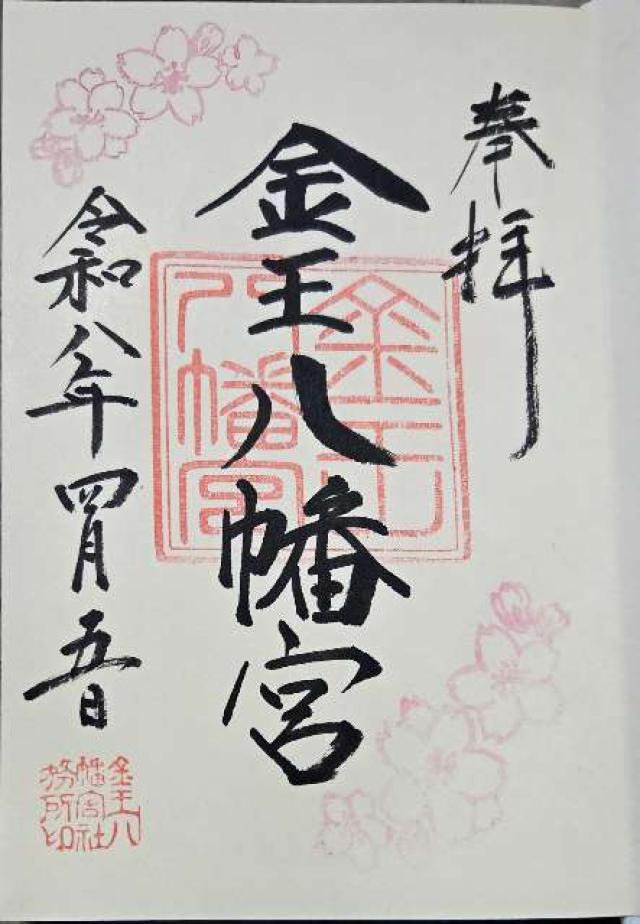 奉拝
金王八幡宮
令和八年四月五日
金王八幡宮
金王八幡宮社務所印